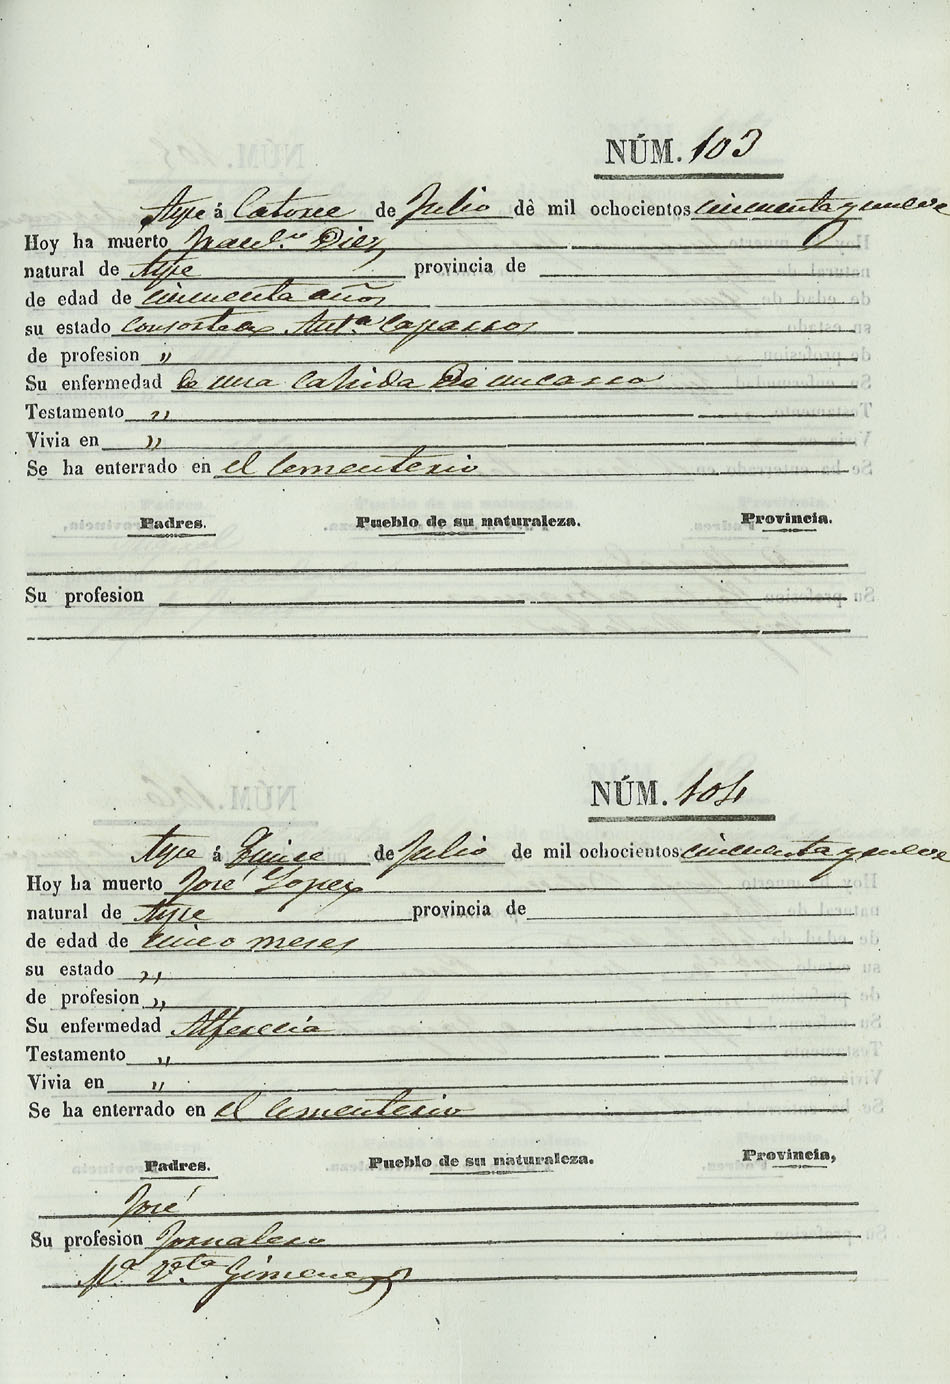 NÚM. 103
Aspe á Catorce de Julio de mil ochocientos cincuenta y nueve
Hoy ha muerto Fran.ca Diez
natural de Aspe provincia de
de edad de cincuenta años
su estado consorte de Ant.o
de profesion "
Su enfermedad de una cahida de una casa
Testamento "
Vivia en "
Se ha enterrado en el Cementerio
Padres. Pueblo de su naturaleza. Provincia.
Su profesion
NÚM. 104
Aspe á Quince de Julio de mil ochocientos cincuenta y nueve
Hoy ha muerto José Lopez
natural de Aspe provincia de
de edad de cinco meses
su estado "
de profesion "
Su enfermedad Alferecia
Testamento "
Vivia en "
Se ha enterrado en el Cementerio
Padres. Pueblo de su naturaleza. Provincia,
José
Su profesion Jornalero
M.a V.ta Gimenez